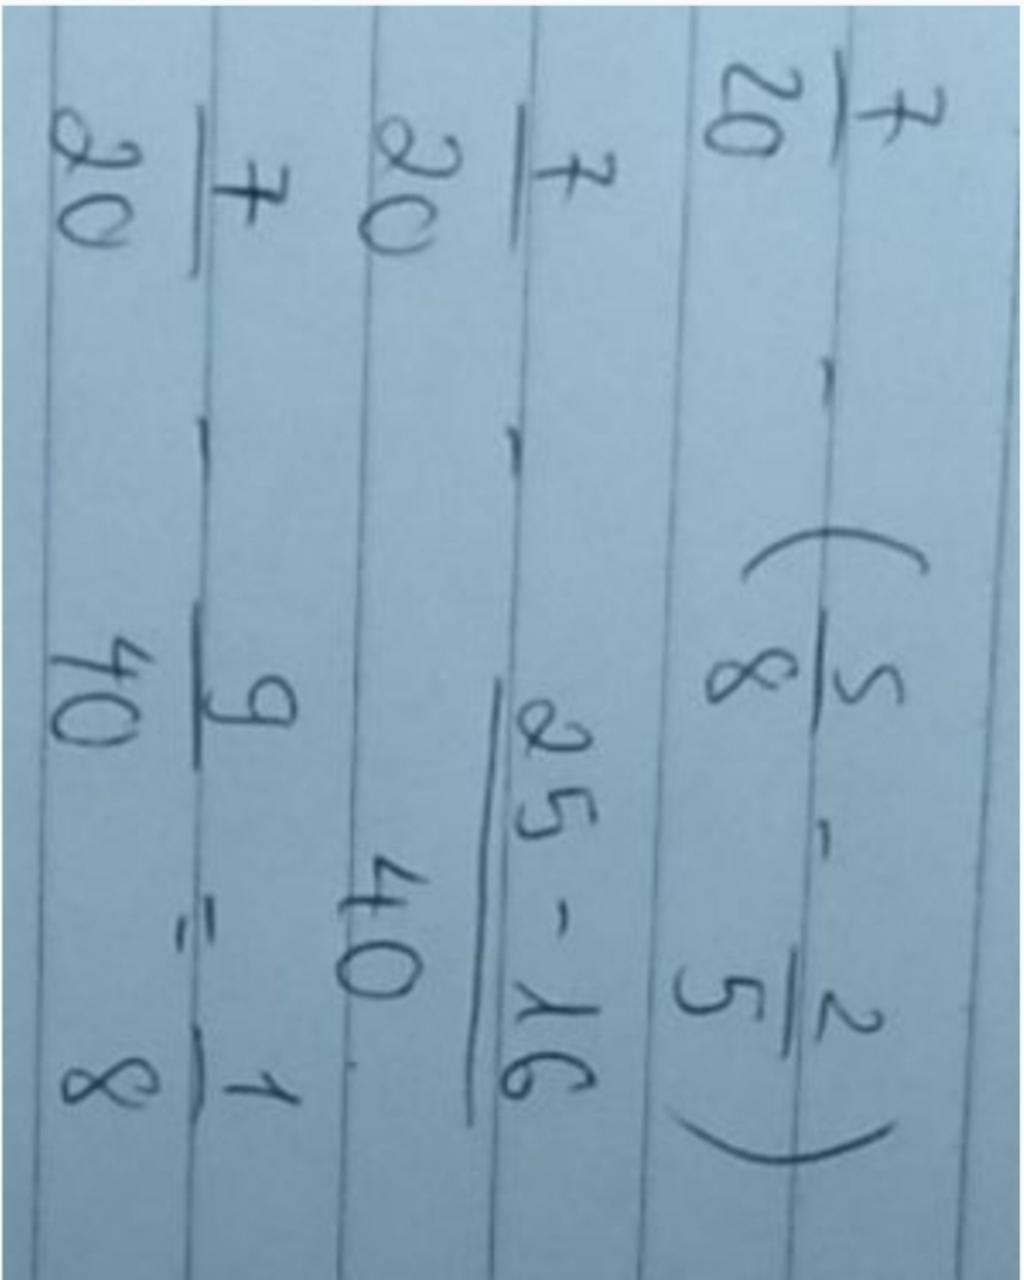 7/20 - (5/8 - 2/5)
7/20 - (25 - 16)/40
7/20 - 9/40 = 1/8